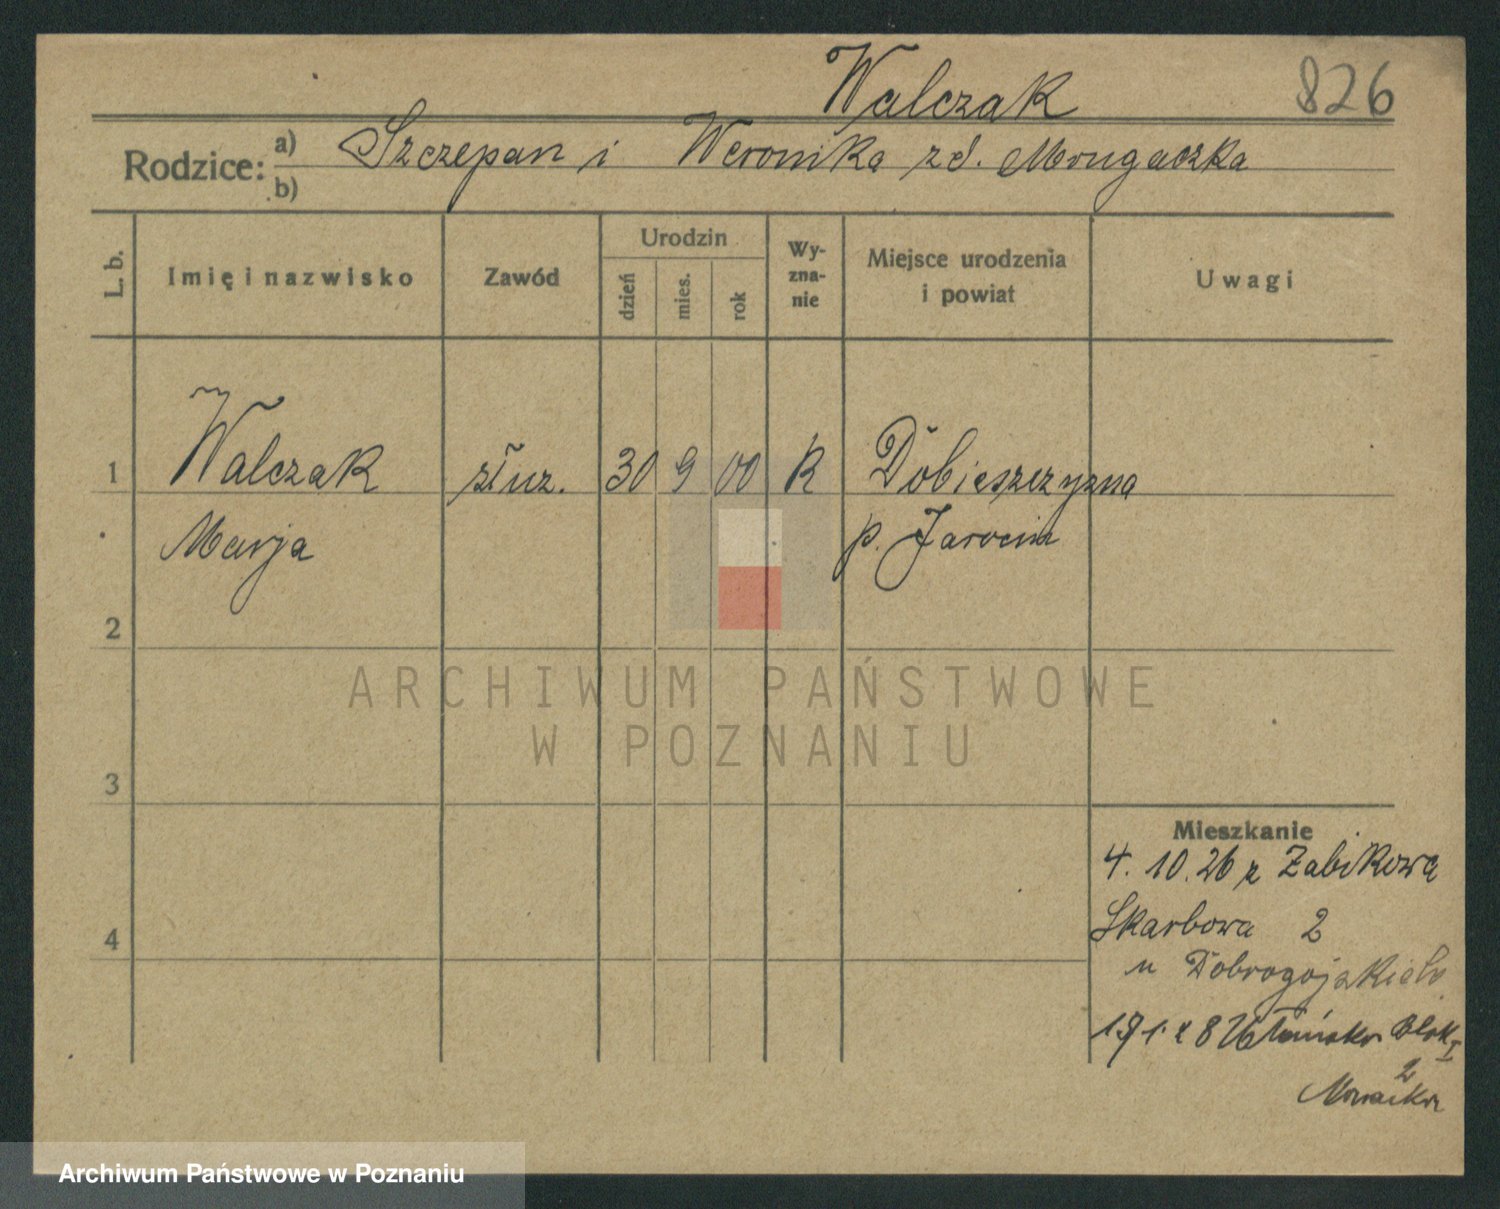 Walczak 826
Rodzice: a) Szczepan i Weronika zd. Mrugaczka
b)
L. b. Imię i nazwisko Zawód Urodzin dzień mies. rok Wy-zna-nie Miejsce urodzenia i powiat Uwagi
1 Walczak służ. 30 9 00 k Dobieszczyzna
Marja p. Jarocin
2
ARCHIWUM PAŃSTWOWE
W POZNANIU
3
Mieszkanie
4. 10. 26 z Żabikowa
Skarbowa 2
4
u
Blok I
2
Archiwum Państwowe w Poznaniu